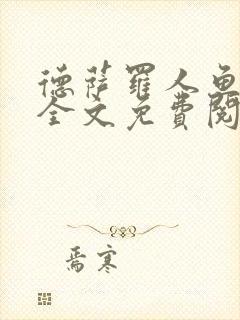 德萨罗人鱼
全文免费阅
焉寒